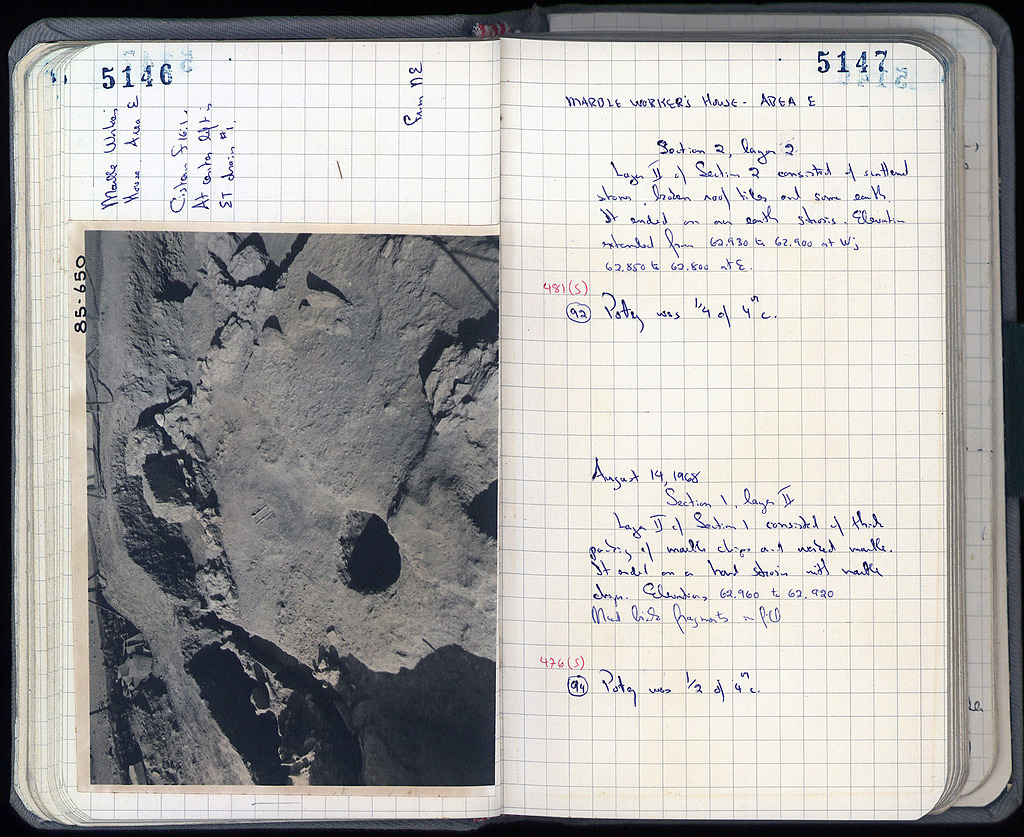 5146
Marble Workers
House Area E
Cistern J 16:1.
At center left is
ET drain #1.
From NE
85-650
5147
MARBLE WORKER'S HOUSE - AREA E
Section 2, layer 2
Layer II of Section 2 consisted of scattered
stones, broken roof tiles and some earth.
It ended on an earth strosis. Elevation
extended from 62.930 to 62.900 at W;
62.850 to 62.800 at E.
481(S)
92 Pottery was 1/4 of 4th c.
August 14, 1968
Section 1, layer II
Layer II of Section 1 consisted of thick
packing of marble chips and worked marble.
It ended on a hard strosis with marble
chips. Elevations 62.960 to 62.920
Mud brick fragments in fill
476(S)
94 Pottery was 1/2 of 4th c.